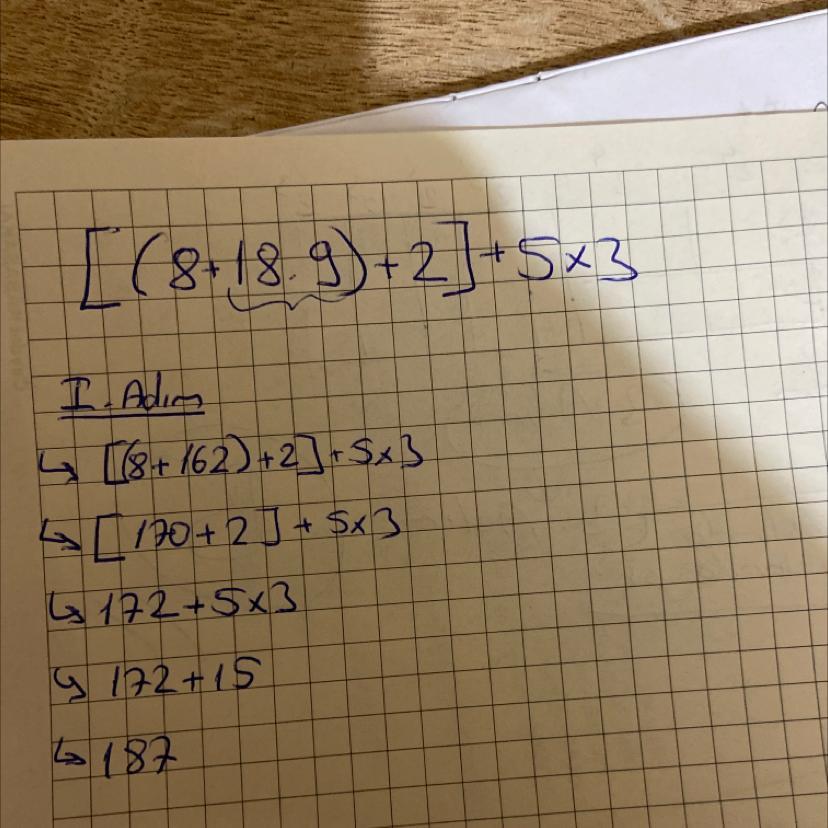 [(8+18.9)+2]+5x3
I. Adım
↳ [(8+162)+2]+5x3
↳ [170+2]+5x3
↳ 172+5x3
↳ 172+15
↳ 187